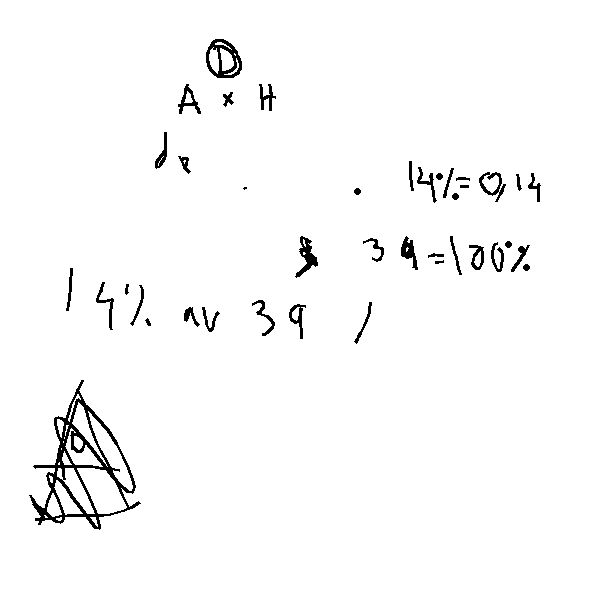 D
A x H
de
14%=0,14
39=100%
14% av 39